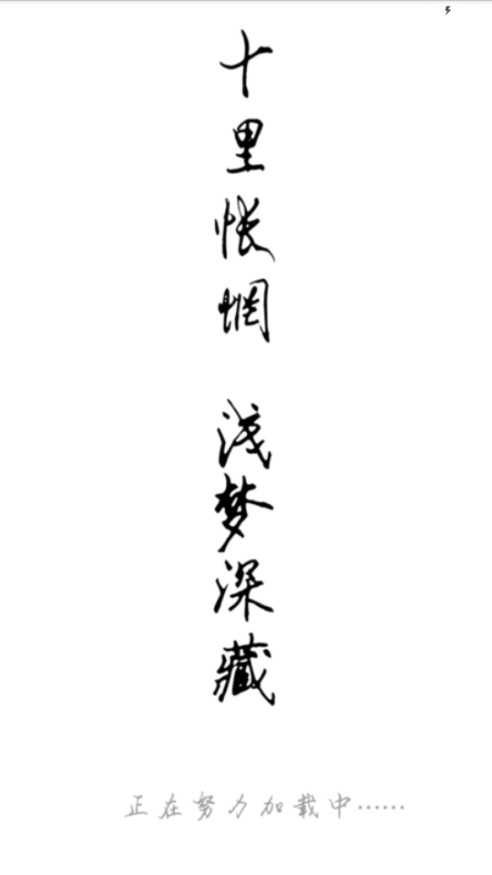 十里怅惘
浅梦深藏
正在努力加载中……